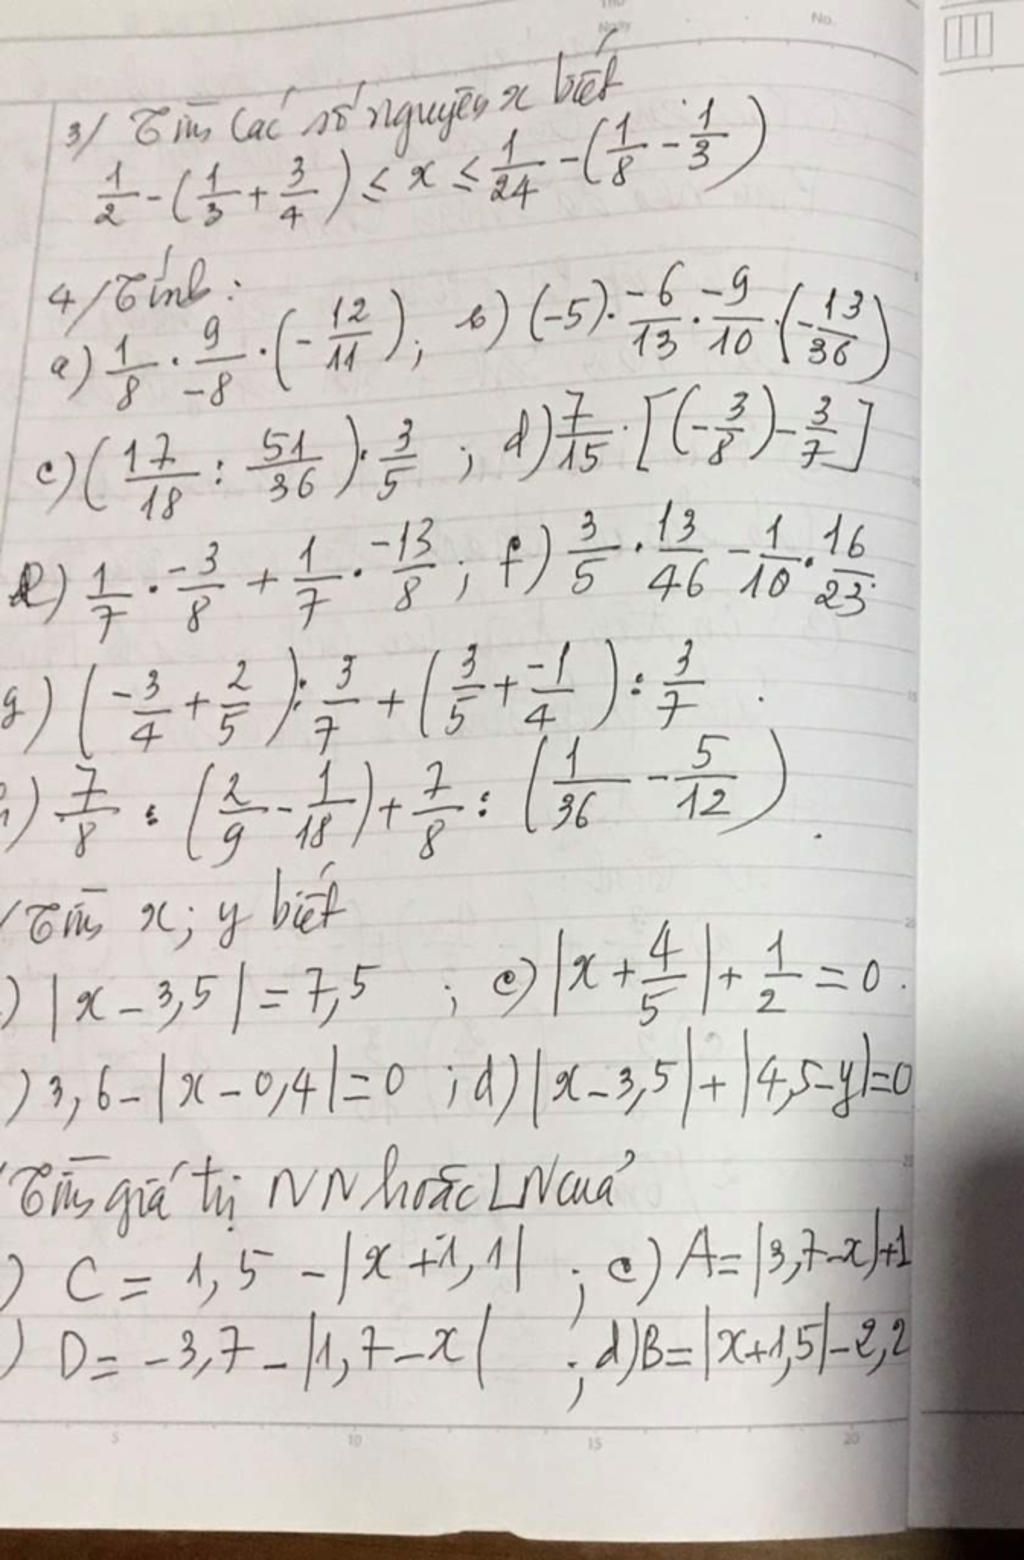 No.
3/ Tìm các số nguyên x biết
1/2 - (1/3 + 3/4) ≤ x ≤ 1/24 - (1/8 - 1/3)
4/ Tính:
a) 1/8 · 9/-8 · (-12/11); b) (-5) · -6/13 · -9/10 · (-13/36)
c) (17/18 : 51/36) · 3/5 ; d) 7/15 · [(-3/8) - 3/7]
e) 1/7 · -3/8 + 1/7 · -13/8 ; f) 3/5 · 13/46 - 1/10 · 16/23
g) (-3/4 + 2/5) : 3/7 + (3/5 + -1/4) : 3/7 .
) 7/8 : (2/9 - 1/18) + 7/8 : (1/36 - 5/12) .
/ Tìm x; y biết
) |x - 3,5| = 7,5 ; c) |x + 4/5| + 1/2 = 0 .
) 3,6 - |x - 0,4| = 0 ; d) |x - 3,5| + |4,5 - y| = 0
Tìm giá trị NN hoặc LN của
) C = 1,5 - |x + 1,1| ; c) A = |3,7 - x| + 1
) D = -3,7 - |1,7 - x| ; d) B = |x + 1,5| - 2,2
5 10 15 20